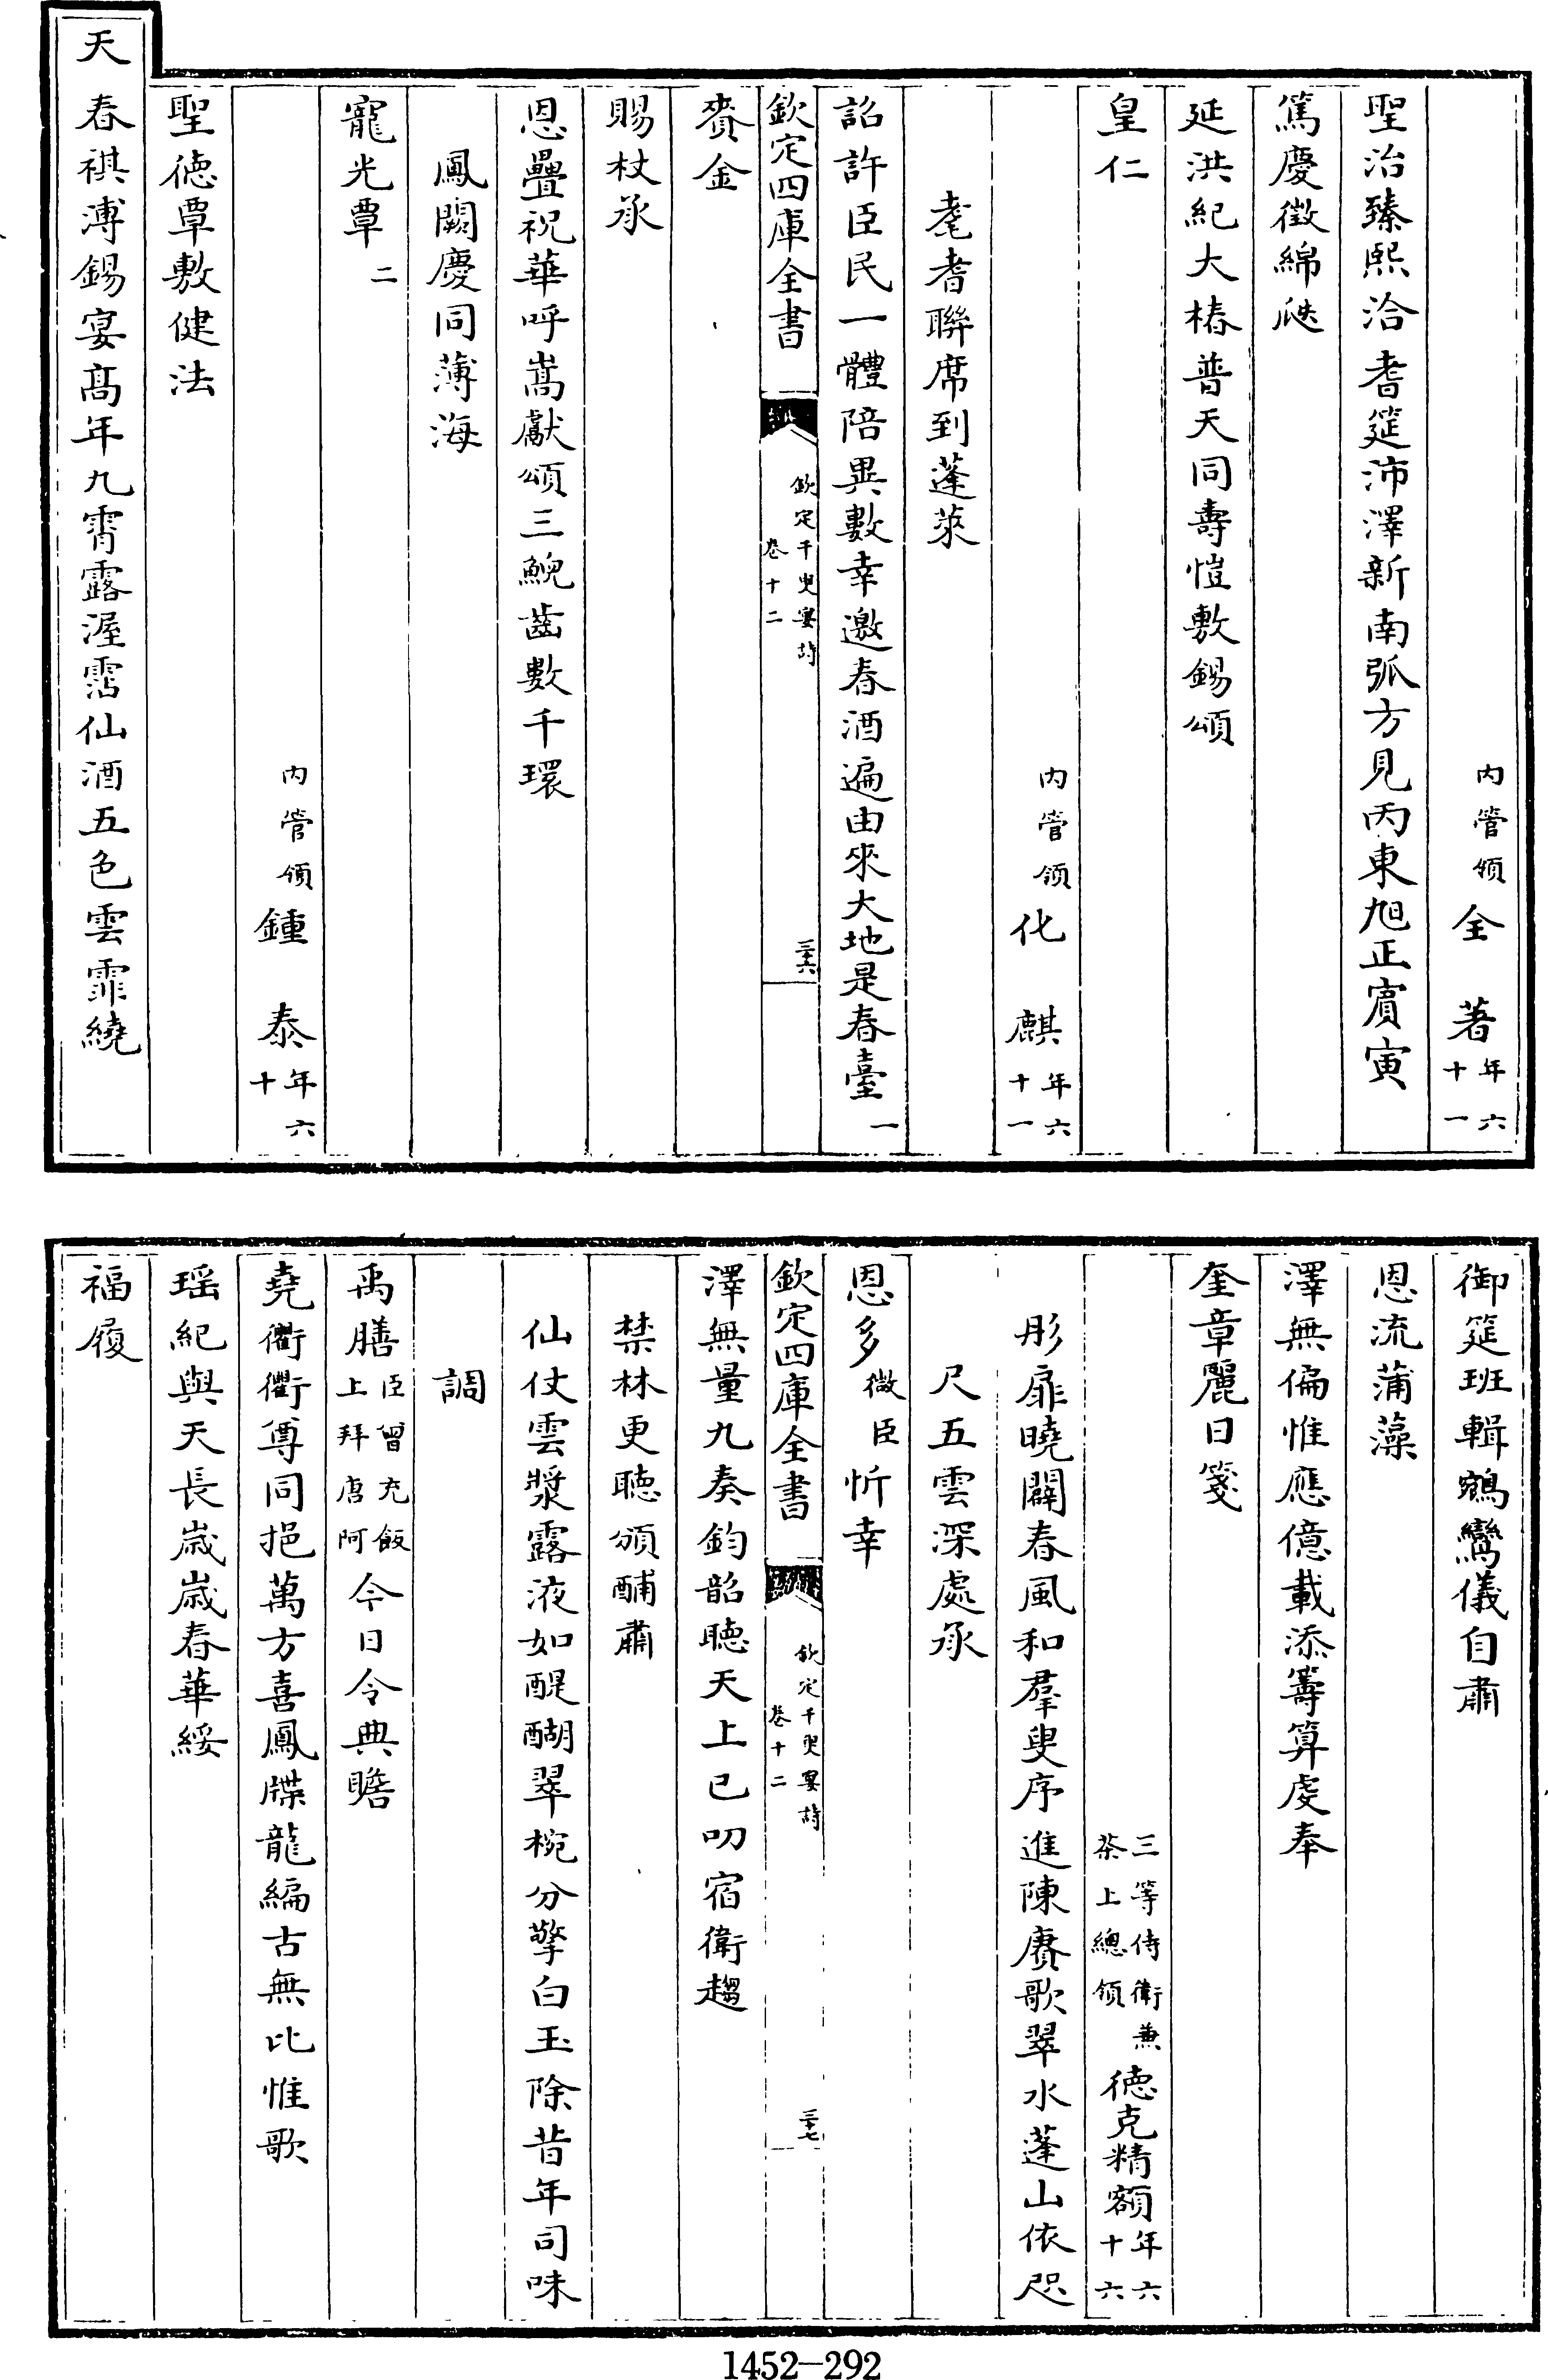 內管領全　著年六十一
聖治臻熙洽耆筵沛澤新南弧方見丙東旭正賓寅
篤慶徵綿瓞
延洪紀大椿普天同壽愷敷錫頌
皇仁
內管領化　麒年六十一
耄耆聯席到蓬萊
詔許臣民一體陪異數幸邀春酒遍由來大地是春臺一
欽定四庫全書
欽定千叟宴詩
卷十二
三十六
賚金
賜杖承
恩疊祝華呼嵩獻頌三鯢齒數千環
鳳闕慶同薄海
寵光覃二
內管領鍾　泰年六十
聖德覃敷健法
天春祺溥錫宴高年九霄露渥霑仙酒五色雲霏繞
御筵班輯鵷鸞儀自肅
恩流蒲藻
澤無偏惟應億載添籌算虔奉
奎章麗日箋
三等侍衛兼茶上總領德克精額年六十六
彤扉曉闢春風和羣叟序進陳賡歌翠水蓬山依咫
尺五雲深處承
恩多微臣忻幸
欽定四庫全書
欽定千叟宴詩
卷十二
三十七
澤無量九奏鈞韶聽天上已叨宿衛趨
禁林更聽頒酺肅
仙仗雲漿露液如醍醐翠椀分擎白玉除昔年司味
調
禹膳臣曾充飯上拜唐阿今日令典瞻
堯衢衢尊同挹萬方喜鳳牒龍編古無比惟歌
瑶紀與天長歲歲春華綏
福履
1452-292